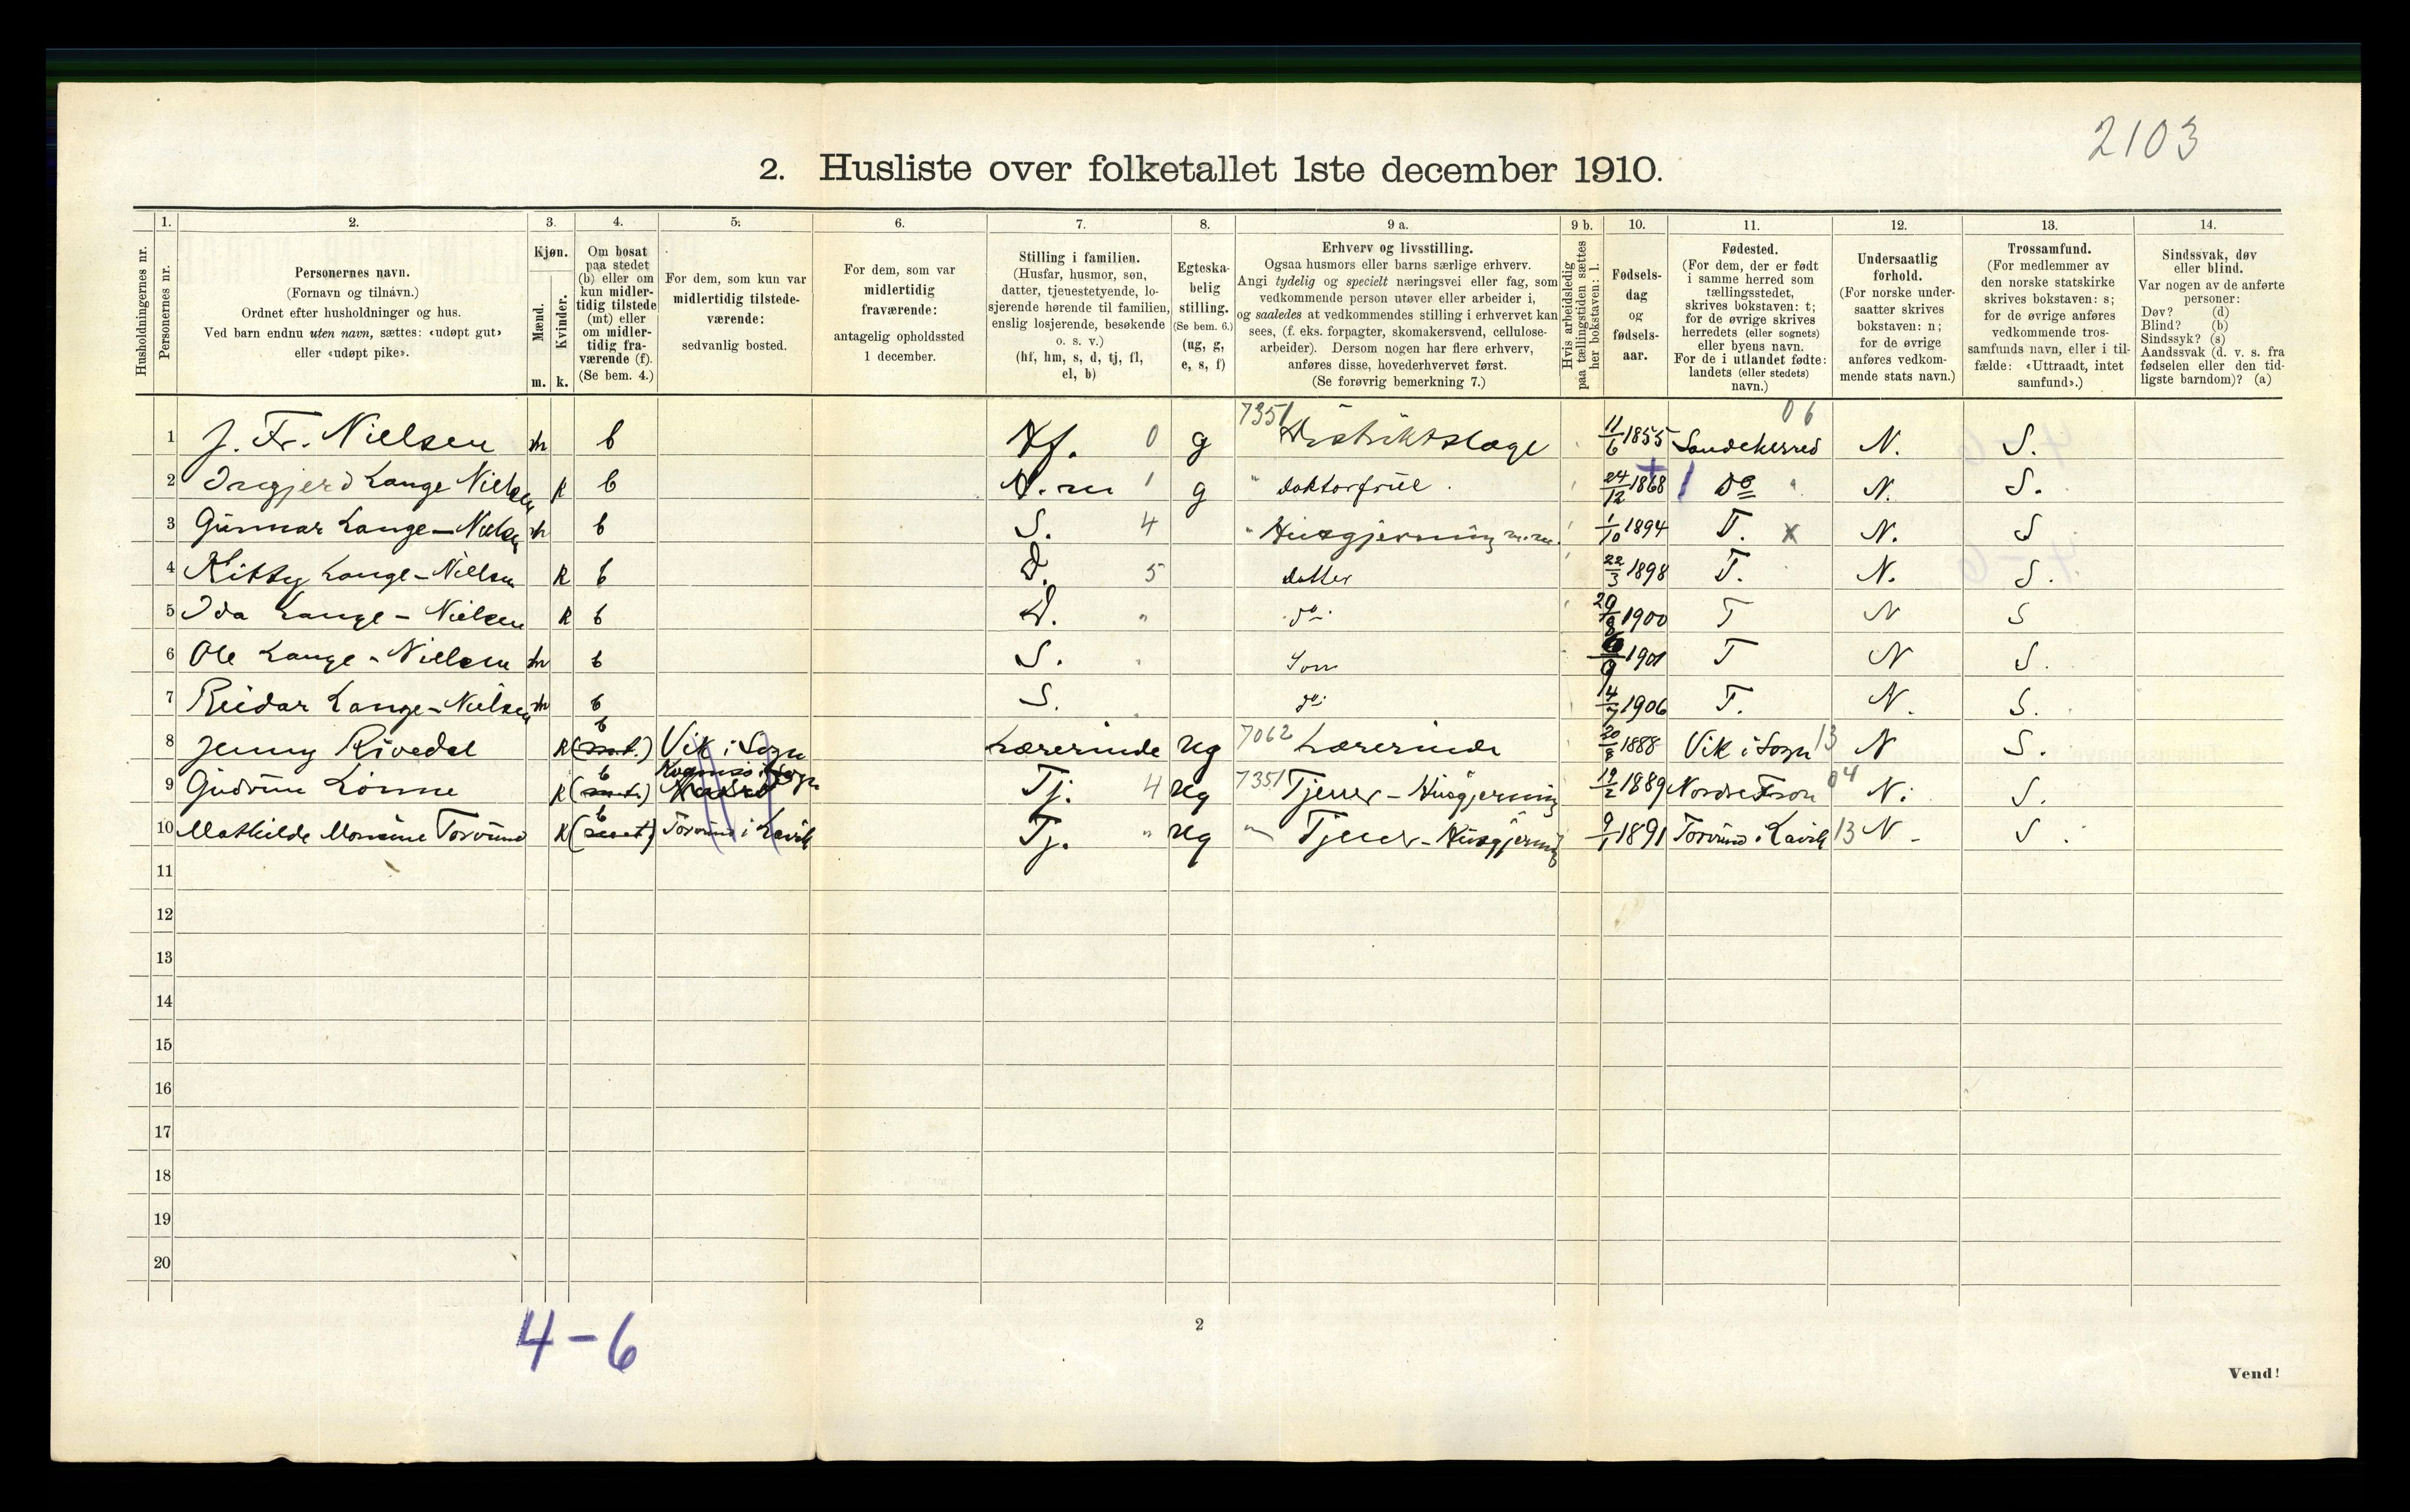 2103
2. Husliste over folketallet 1ste december 1910.
Husholdningernes nr.
1.
Personernes nr.
2.
Personernes navn.
(Fornavn og tilnavn.)
Ordnet efter husholdninger og hus.
Ved barn endnu uten navn, sættes: «udøpt gut»
eller «udøpt pike».
3.
Kjøn.
Mænd.
Kvinder.
m. k.
4.
Om bosat
paa stedet
(b) eller om
kun midler-
tidig tilstede
(mt) eller
om midler-
tidig fra-
værende (f).
(Se bem. 4.)
5.
For dem, som kun var
midlertidig tilstede-
værende:
sedvanlig bosted.
6.
For dem, som var
midlertidig
fraværende:
antagelig opholdssted
1 december.
7.
Stilling i familien.
(Husfar, husmor, søn,
datter, tjenestetyende, lo-
sjerende hørende til familien,
enslig losjerende, besøkende
o. s. v.)
(hf, hm, s, d, tj, fl,
el, b)
8.
Egteska-
belig
stilling.
(Se bem. 6.)
(ug, g,
e, s, f)
9 a.
Erhverv og livsstilling.
Ogsaa husmors eller barns særlige erhverv.
Angi tydelig og specielt næringsvei eller fag, som
vedkommende person utøver eller arbeider i,
og saaledes at vedkommendes stilling i erhvervet kan
sees, (f. eks. forpagter, skomakersvend, cellulose-
arbeider). Dersom nogen har flere erhverv,
anføres disse, hovederhvervet først.
(Se forøvrig bemerkning 7.)
9 b.
Hvis arbeidsledig
paa tællingstiden sættes
her bokstaven: l.
10.
Fødsels-
dag
og
fødsels-
aar.
11.
Fødested.
(For dem, der er født
i samme herred som
tællingsstedet,
skrives bokstaven: t;
for de øvrige skrives
herredets (eller sognets)
eller byens navn.
For de i utlandet fødte:
landets (eller stedets)
navn.)
12.
Undersaatlig
forhold.
(For norske under-
saatter skrives
bokstaven: n;
for de øvrige
anføres vedkom-
mende stats navn.)
13.
Trossamfund.
(For medlemmer av
den norske statskirke
skrives bokstaven: s;
for de øvrige anføres
vedkommende tros-
samfunds navn, eller i til-
fælde: «Uttraadt, intet
samfund».)
14.
Sindssvak, døv
eller blind.
Var nogen av de anførte
personer:
Døv? (d)
Blind? (b)
Sindssyk? (s)
Aandssvak (d. v. s. fra
fødselen eller den tid-
ligste barndom)? (a)
1 J. Fr. Nielsen m b Hf. 0 g 7351 Distriktslæge 11/6 1855 Sandeherred 06 N. S.
2 Ingjerd Lange Nielsen k b H.m 1 g " Doktorfrue. 24/12 1868 Do N. S.
3 Gunnar Lange-Nielsen m b S. 4 " Husgjerning m.m. 1/10 1894 T. x N. S
4 Kitty Lange-Nielsen k b D. 5 datter 22/3 1898 T. N. S.
5 Ida Lange-Nielsen k b D. " do 1900 T N S
6 Ole Lange-Nielsen m b S. " Søn 1901 T N S.
7 Reidar Lange-Nielsen m b S. do 1906 T. N. S.
8 Jenny Rivedal k b (mt.) Vik i Sogn Lærerinde ug 7062 Lærerinde 1888 Vik i Sogn 13 N S.
9 Gudrun Lonne k b (mt.) Tj. 4 ug 7351 Tjener-Husgjerning 19/2 1889 Nordre Fron 04 N. S.
10 Mathilde Monsine Torvund k b (mt) Torvund i Lavik Tj. " ug " Tjener-Husgjerning 9/1 1891 Torvund i Lavik 13 N - S.
11
12
13
14
15
16
17
18
19
20
4-6
2
Vend!